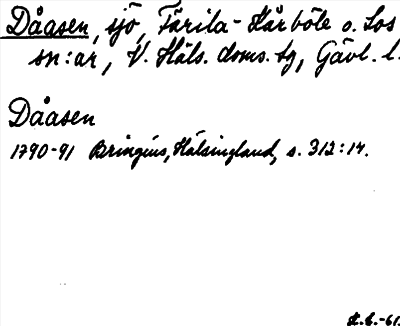 Dåasen, sjö, Färila-Kårböle o. Los
sn:ar, V. Häls. doms. tg, Gävl. l.
Dåasen
1790-91 Bringéus, Hälsingland, s. 312:14.
K.C.-61.